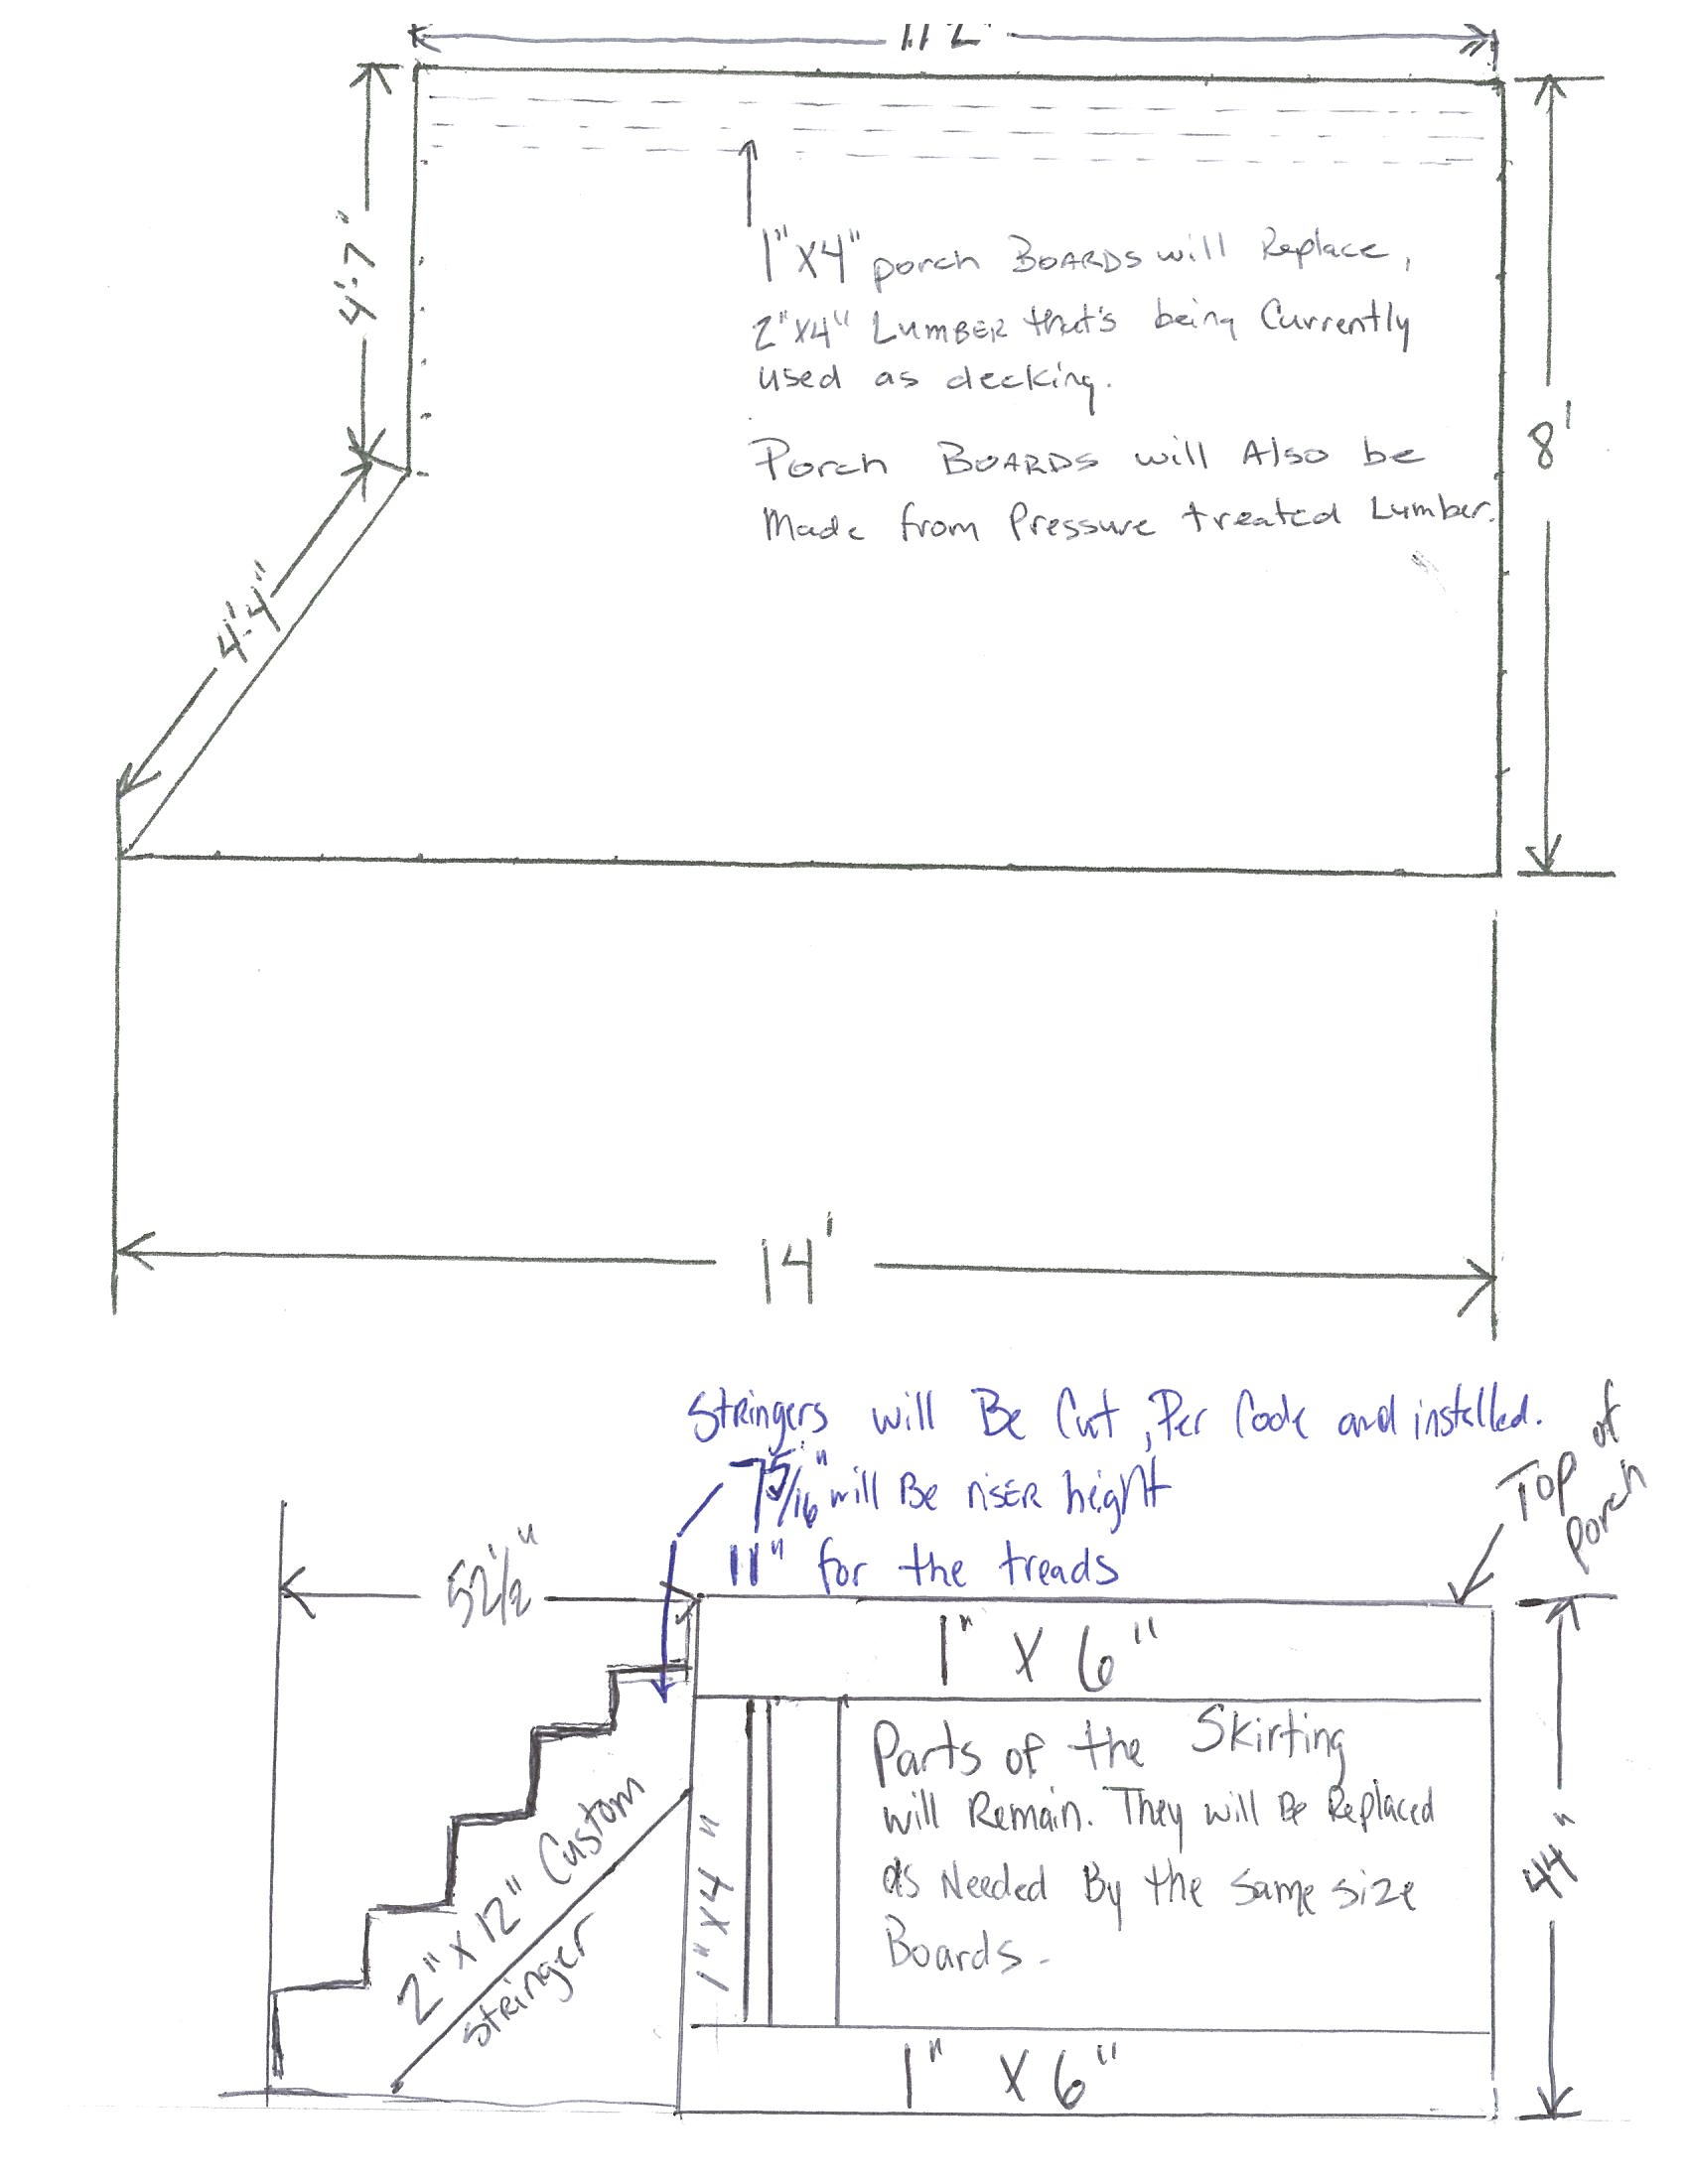 4'-7"
1"x4" porch BOARDS will Replace,
2"x4" LUMBER that's being Currently
used as decking.
Porch BOARDS will Also be
Made from Pressure treated Lumber.
8'
4'-4"
14'
Stringers will Be Cut, Per Code and installed.
7 5/16" will Be riser height
11" for the treads
Top of
porch
52 1/2"
1" x 6"
Parts of the Skirting
will Remain. They will Be Replaced
as Needed By the same size
Boards.
44"
2" x 12" Custom
Stringer
1" x 4"
1" x 6"